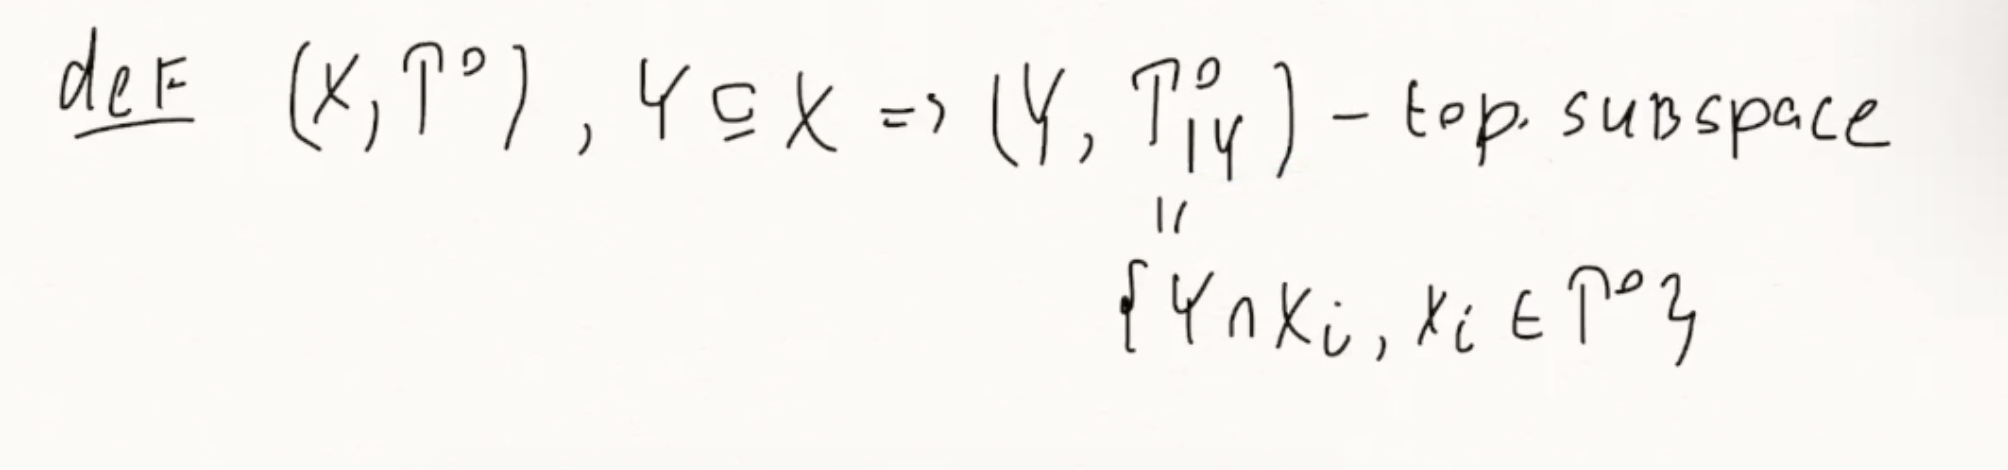 def (X, T°), Y ⊆ X => (Y, T°|Y) - top. subspace
||
{Y ∩ Xi, Xi ∈ T°}